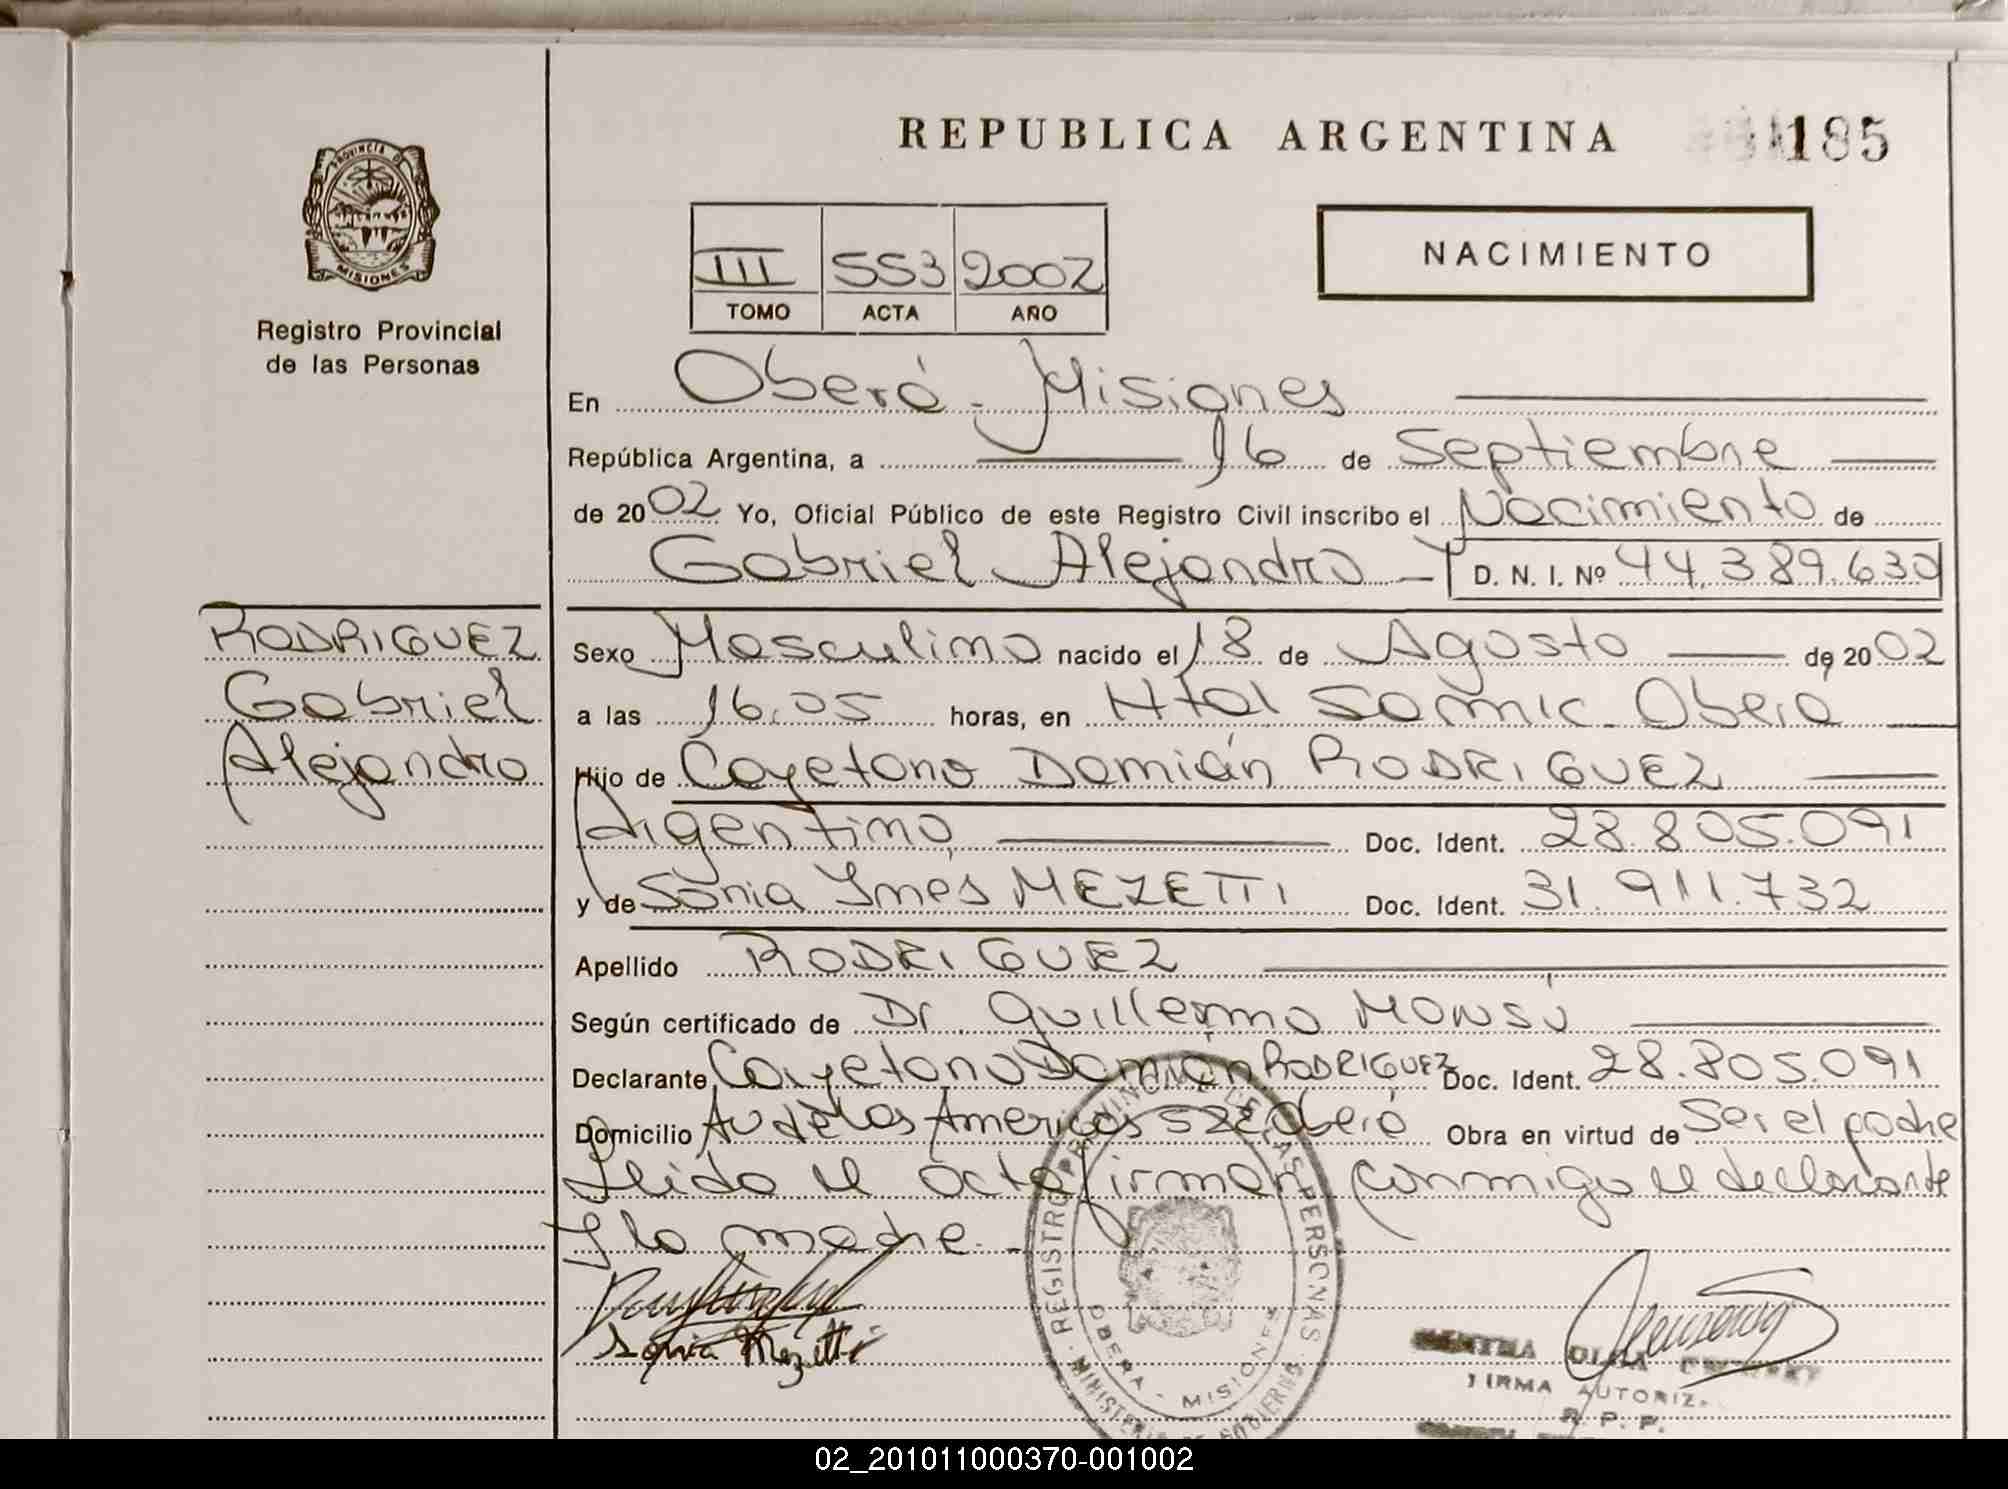 REPUBLICA ARGENTINA
185
PROVINCIA DE
MISIONES
Registro Provincial
de las Personas
III 553 2002
TOMO ACTA AÑO
NACIMIENTO
En Oberá - Misiones
República Argentina, a 16 de Septiembre
de 2002 Yo, Oficial Público de este Registro Civil inscribo el Nacimiento de
Gabriel Alejandro D. N. I. Nº 44.389.630
RODRIGUEZ
Gabriel
Alejandro
Sexo Masculino nacido el 18 de Agosto de 2002
a las 16.05 horas, en Htal Samic - Obera
Hijo de Cayetano Damián RODRIGUEZ
Argentino, Doc. Ident. 28.805.091
y de Sonia Ynés MEZETTI Doc. Ident. 31.911.732
Apellido RODRIGUEZ
Según certificado de Dr. Guillermo MONSÚ
Declarante Cayetano Damián RODRIGUEZ Doc. Ident. 28.805.091
Domicilio Av de las Americas 522 Oberá Obra en virtud de Ser el padre
Leida el acta firman conmigo el declarante
y la madre.-
Sonia Mezetti
REGISTRO PROVINCIAL DE LAS PERSONAS
OBERA - MISIONES
MINISTERIO DE GOBIERNO
FIRMA AUTORIZ
R. P. P.
02_201011000370-001002